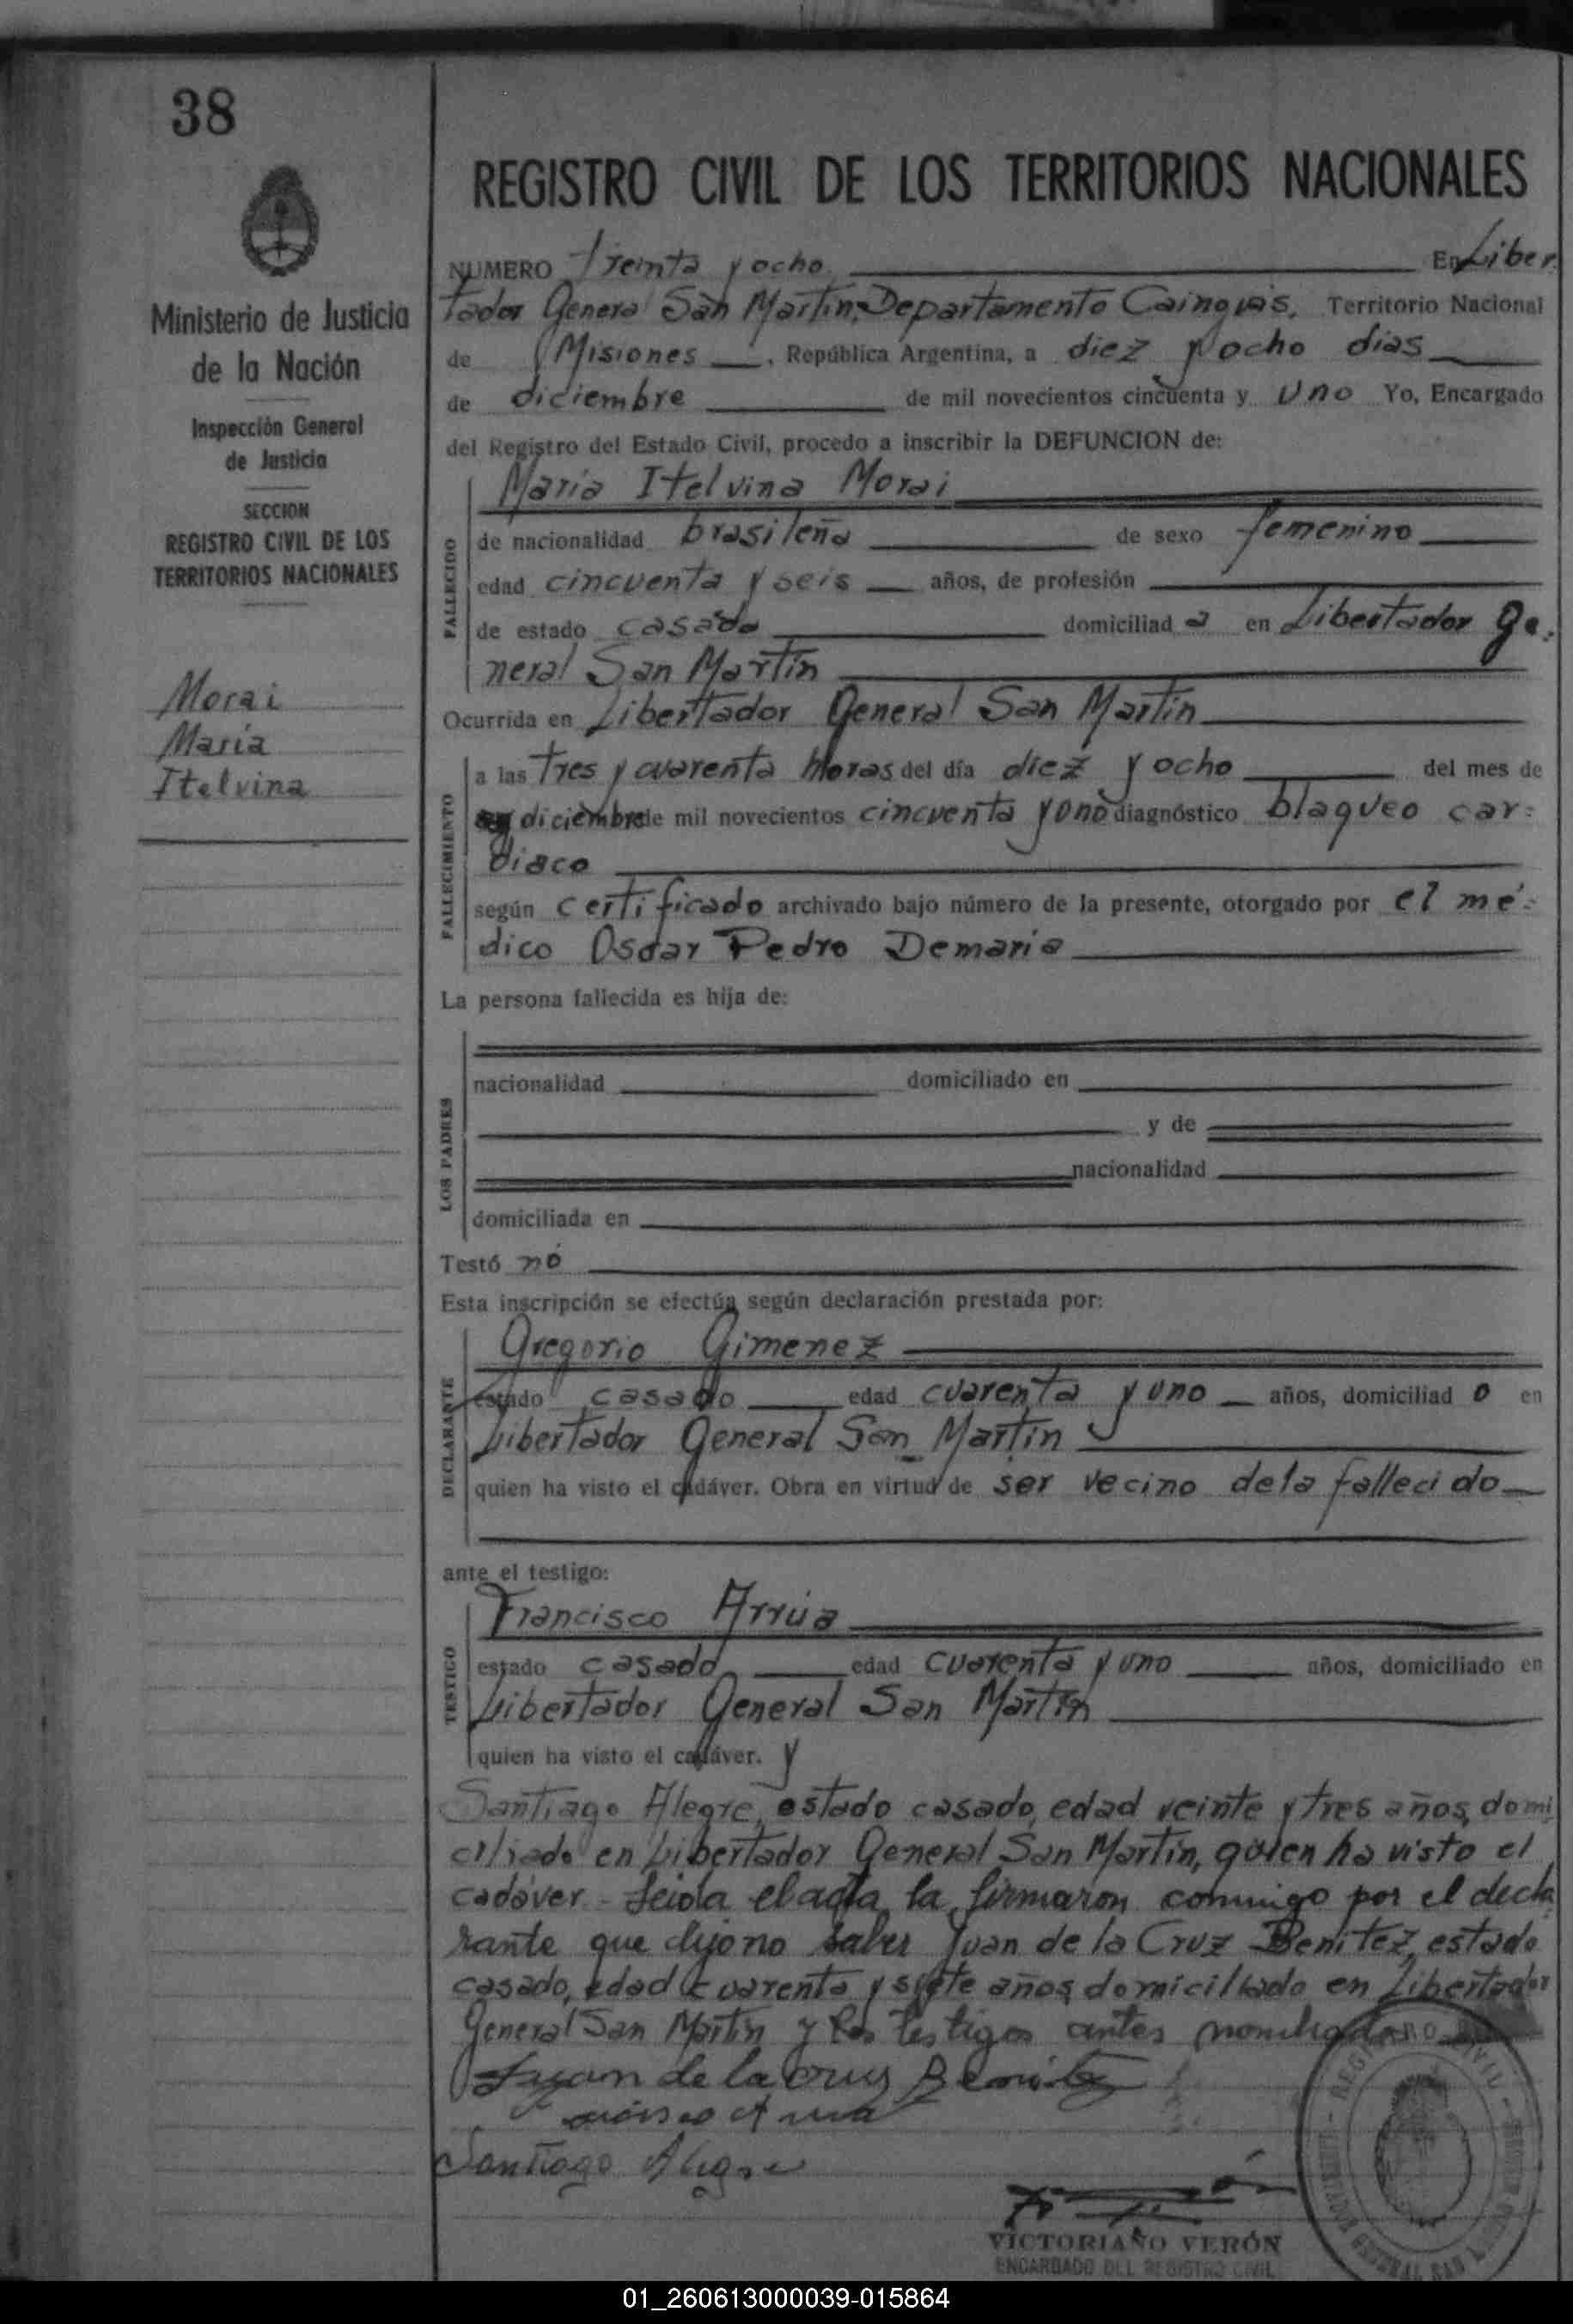 38
Ministerio de Justicia
de la Nación
Inspección General
de Justicia
SECCION
REGISTRO CIVIL DE LOS
TERRITORIOS NACIONALES
Morai
María
Itelvina
REGISTRO CIVIL DE LOS TERRITORIOS NACIONALES
NUMERO Treinta y ocho En Liber
tador General San Martín, Departamento Cainguás, Territorio Nacional
de Misiones, República Argentina, a diez y ocho dias
de diciembre de mil novecientos cincuenta y uno Yo, Encargado
del Registro del Estado Civil, procedo a inscribir la DEFUNCION de:
FALLECIDO
María Itelvina Morai
de nacionalidad brasileña de sexo femenino
edad cincuenta y seis años, de profesión
de estado casada domiciliad a en Libertador Ge-
neral San Martín
Ocurrida en Libertador General San Martín
FALLECIMIENTO
a las Tres y cuarenta horas del día diez y ocho del mes de
diciembre de mil novecientos cincuenta y uno diagnóstico blaqueo car=
diaco
según certificado archivado bajo número de la presente, otorgado por el mé=
dico Oscar Pedro Demaria
La persona fallecida es hija de:
LOS PADRES
nacionalidad domiciliado en
y de
nacionalidad
domiciliada en
Testó nó
Esta inscripción se efectúa según declaración prestada por:
DECLARANTE
Gregorio Gimenez
estado casado edad cuarenta y uno años, domiciliad o en
Libertador General San Martín
quien ha visto el cadáver. Obra en virtud de ser vecino dela fallecido
ante el testigo:
TESTIGO
Francisco Arrúa
estado casado edad cuarenta y uno años, domiciliado en
Libertador General San Martín
quien ha visto el cadáver. y
Santiago Alegre, estado casado, edad veinte y tres años, domi
ciliado en Libertador General San Martín, quien ha visto el
cadáver - Leida el acta la firmaron conmigo por el decla
rante que dijo no saber Juan de la Cruz Benitez, estado
casado, edad cuarenta y siete años, domiciliado en Libertador
General San Martín y los testigos antes nombrados
Juan de la Cruz Benitez
Santiago Alegre
VICTORIANO VERÓN
ENCARGADO DEL REGISTRO CIVIL
01_260613000039-015864